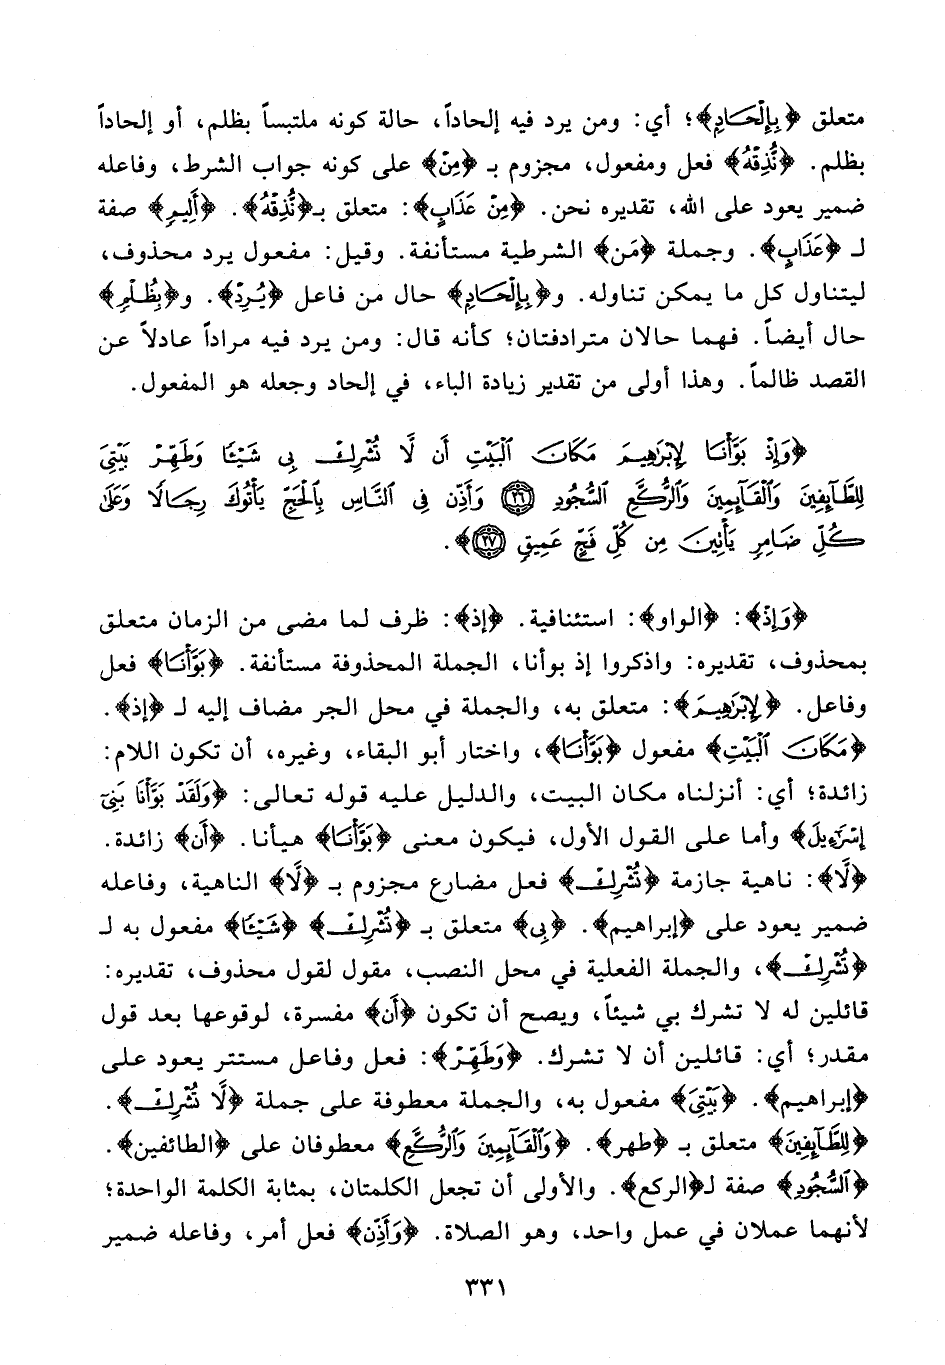 متعلق ﴿بِإِلْحَادٍ﴾؛ أي: ومن يرد فيه إلحاداً، حالة كونه ملتبساً بظلم، أو إلحاداً
بظلم. ﴿نُّذِقْهُ﴾ فعل ومفعول، مجزوم بـ ﴿مِنْ﴾ على كونه جواب الشرط، وفاعله
ضمير يعود على الله، تقديره نحن. ﴿مِنْ عَذَابٍ﴾: متعلق بـ﴿نُّذِقْهُ﴾. ﴿أَلِيمٍ﴾ صفة
لـ ﴿عَذَابٍ﴾. وجملة ﴿مَن﴾ الشرطية مستأنفة. وقيل: مفعول يرد محذوف،
ليتناول كل ما يمكن تناوله. و﴿بِإِلْحَادٍ﴾ حال من فاعل ﴿يُرِدْ﴾. و﴿بِظُلْمٍ﴾
حال أيضاً. فهما حالان مترادفتان؛ كأنه قال: ومن يرد فيه مراداً عادلاً عن
القصد ظالماً. وهذا أولى من تقدير زيادة الباء، في إلحاد وجعله هو المفعول.
﴿وَإِذْ بَوَّأْنَا لِإِبْرَٰهِيمَ مَكَانَ ٱلْبَيْتِ أَن لَّا تُشْرِكْ بِى شَيْـًٔا وَطَهِّرْ بَيْتِىَ
لِلطَّآئِفِينَ وَٱلْقَآئِمِينَ وَٱلرُّكَّعِ ٱلسُّجُودِ ٢٦ وَأَذِّن فِى ٱلنَّاسِ بِٱلْحَجِّ يَأْتُوكَ رِجَالًا وَعَلَىٰ
كُلِّ ضَامِرٍ يَأْتِينَ مِن كُلِّ فَجٍّ عَمِيقٍ ٢٧﴾.
﴿وَإِذْ﴾: ﴿الواو﴾: استئنافية. ﴿إذ﴾: ظرف لما مضى من الزمان متعلق
بمحذوف، تقديره: واذكروا إذ بوأنا، الجملة المحذوفة مستأنفة. ﴿بَوَّأْنَا﴾ فعل
وفاعل. ﴿لِإِبْرَٰهِيمَ﴾: متعلق به، والجملة في محل الجر مضاف إليه لـ ﴿إذ﴾.
﴿مَكَانَ ٱلْبَيْتِ﴾ مفعول ﴿بَوَّأْنَا﴾، واختار أبو البقاء، وغيره، أن تكون اللام:
زائدة؛ أي: أنزلناه مكان البيت، والدليل عليه قوله تعالى: ﴿وَلَقَدْ بَوَّأْنَا بَنِىٓ
إِسْرَٰٓءِيلَ﴾ وأما على القول الأول، فيكون معنى ﴿بَوَّأْنَا﴾ هيأنا. ﴿أَن﴾ زائدة.
﴿لَّا﴾: ناهية جازمة ﴿تُشْرِكْ﴾ فعل مضارع مجزوم بـ ﴿لَّا﴾ الناهية، وفاعله
ضمير يعود على ﴿إبراهيم﴾. ﴿بِى﴾ متعلق بـ ﴿تُشْرِكْ﴾ ﴿شَيْـًٔا﴾ مفعول به لـ
﴿تُشْرِكْ﴾، والجملة الفعلية في محل النصب، مقول لقول محذوف، تقديره:
قائلين له لا تشرك بي شيئاً، ويصح أن تكون ﴿أَن﴾ مفسرة، لوقوعها بعد قول
مقدر؛ أي: قائلين أن لا تشرك. ﴿وَطَهِّرْ﴾: فعل وفاعل مستتر يعود على
﴿إبراهيم﴾. ﴿بَيْتِىَ﴾ مفعول به، والجملة معطوفة على جملة ﴿لَّا تُشْرِكْ﴾.
﴿لِلطَّآئِفِينَ﴾ متعلق بـ ﴿طهر﴾. ﴿وَٱلْقَآئِمِينَ وَٱلرُّكَّعِ﴾ معطوفان على ﴿الطائفين﴾.
﴿ٱلسُّجُودِ﴾ صفة لـ﴿الركع﴾. والأولى أن تجعل الكلمتان، بمثابة الكلمة الواحدة؛
لأنهما عملان في عمل واحد، وهو الصلاة. ﴿وَأَذِّن﴾ فعل أمر، وفاعله ضمير
٣٣١